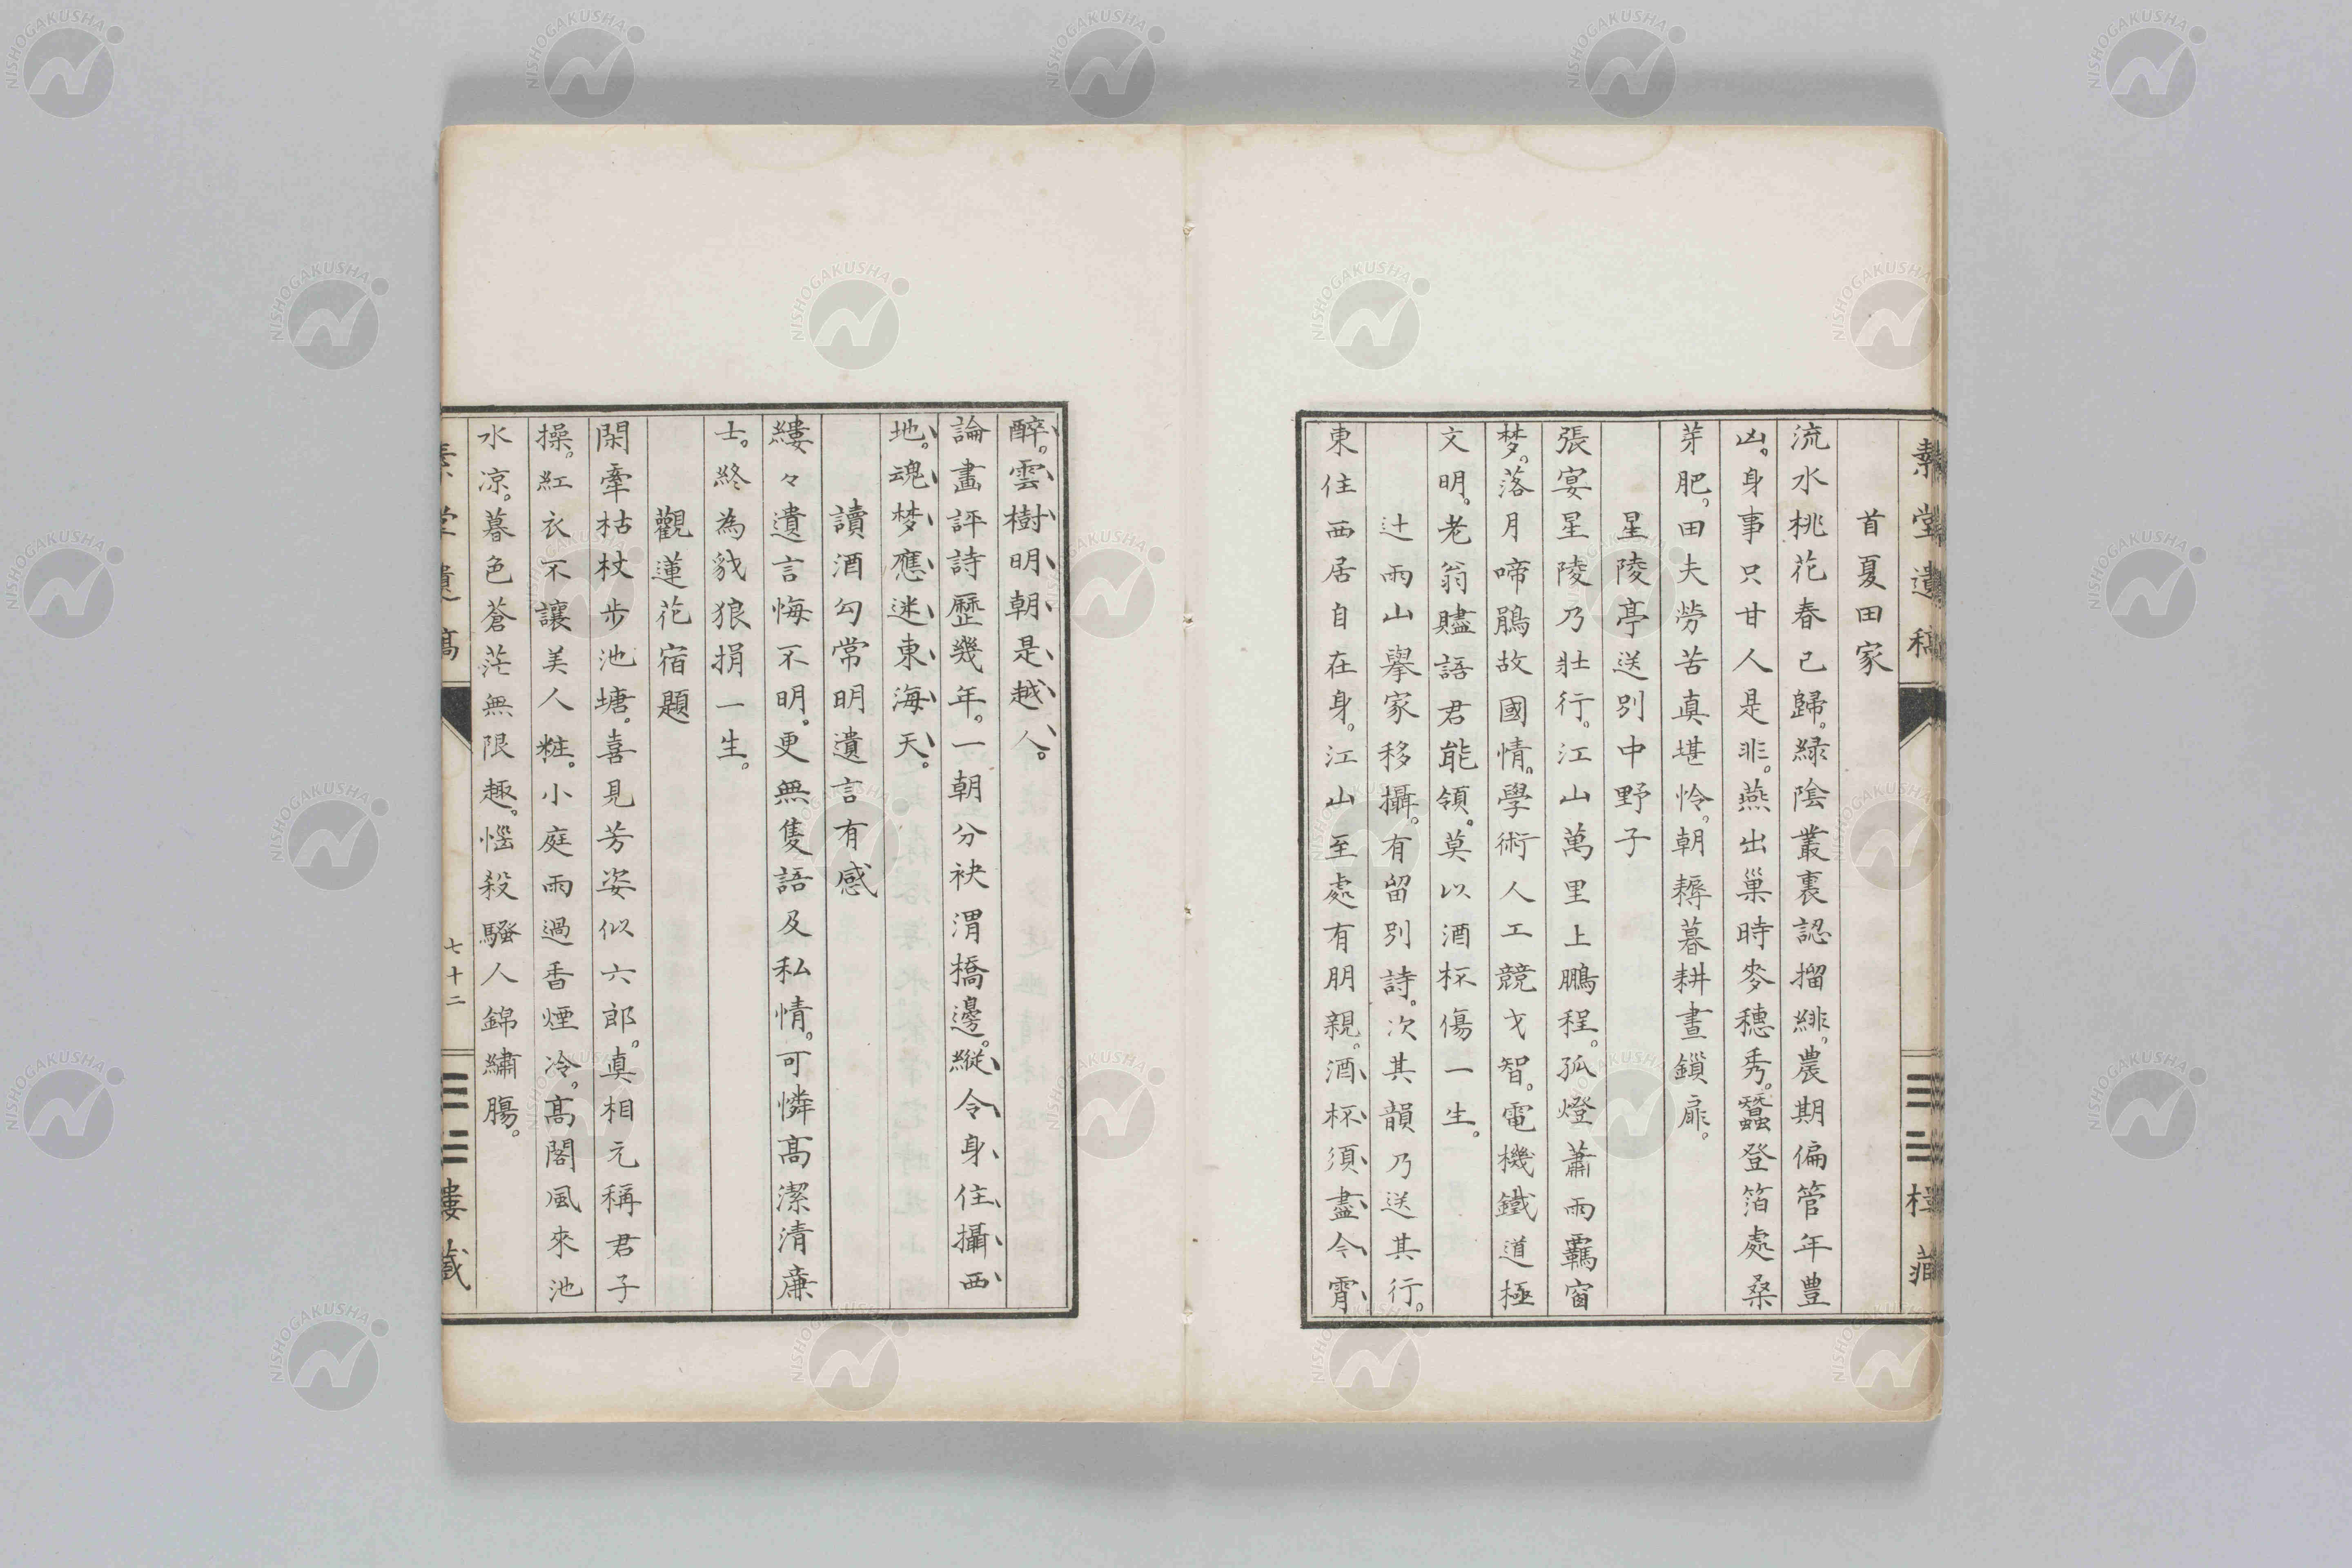 首夏田家
流水桃花春已歸。緑陰叢裏認榴緋。農期偏管年豊
凶。身事只甘人是非。燕出巢時麥穗秀。蠶登箔處桑
芽肥。田夫勞苦真堪怜。朝耨暮耕晝鎖扉。
星陵亭送別中野子
張宴星陵乃壯行。江山萬里上鵬程。孤燈蕭雨羈窗
梦。落月啼鵑故國情。學術人工競才智。電機鐵道極
文明。老翁贐語君能領。莫以酒杯傷一生。
辻雨山擧家移攝。有留別詩。次其韻乃送其行。
東住西居自在身。江山至處有朋親。酒杯須盡今霄
素堂遺稿
醉。雲樹明朝是越人。
論畫評詩歷幾年。一朝分袂渭橋邊。縱令身住攝西
地。魂梦應迷東海天。
讀酒勾常明遺言有感
縷々遺言悔不明。更無隻語及私情。可憐髙潔清廉
士。終為戝狼捐一生。
觀蓮花宿題
閑牽枯杖步池塘。喜見芳姿似六郎。真相元稱君子
操。紅衣不讓美人粧。小庭雨過香煙冷。髙閣風來池
水凉。暮色蒼茫無限趣。惱殺騷人錦繡膓。
七十二